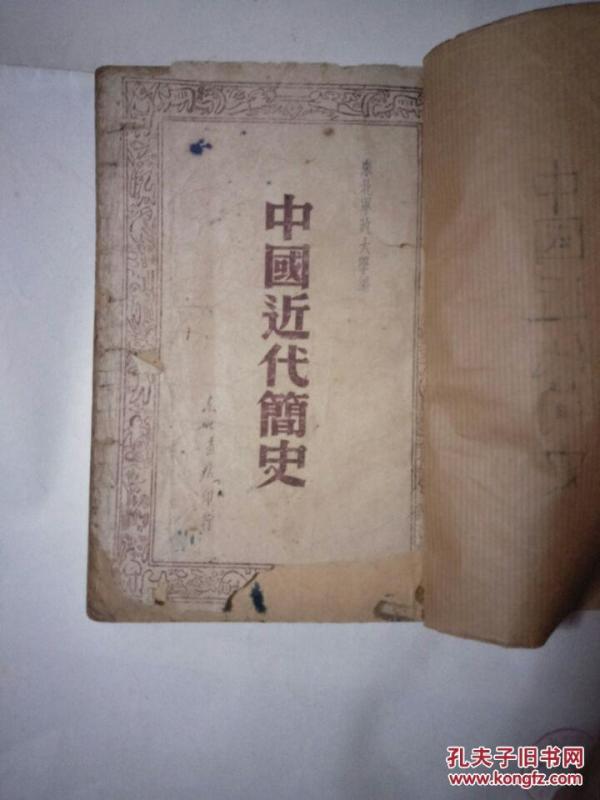 東北軍政大學著
中國近代簡史
東北書店印行
中國近代簡史
孔夫子旧书网
www.kongfz.com